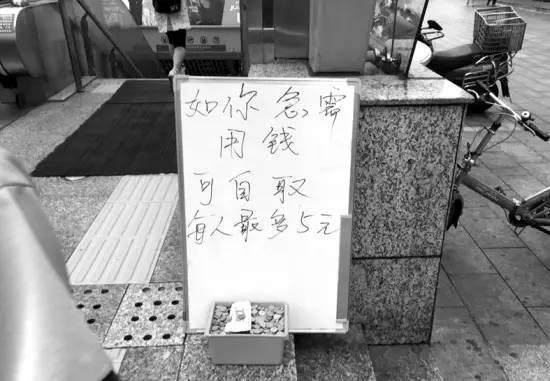 如你急需
用钱
可自取
每人最多5元